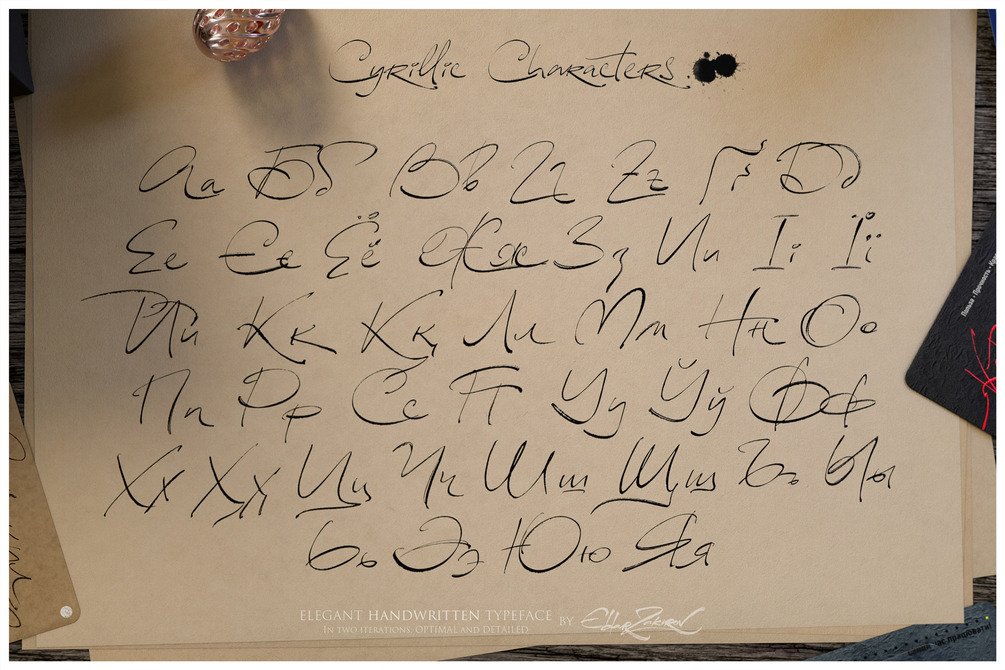 Cyrillic Characters
Аа Бб Вв Гг Ғғ Ґґ Дд
Ее Єє Ёё Жж Зз Ии Іі Її
Йй Кк Ққ Лл Мм Нн Оо
Пп Рр Сс Тт Уу Ўў Фф
Хх Ҳҳ Цц Чч Шш Щщ Ъъ Ыы
Ьь Ээ Юю Яя
Польза · Прочность ·
ELEGANT HANDWRITTEN TYPEFACE BY Eldar Zakirov
IN TWO ITERATIONS: OPTIMAL AND DETAILED
працювати!